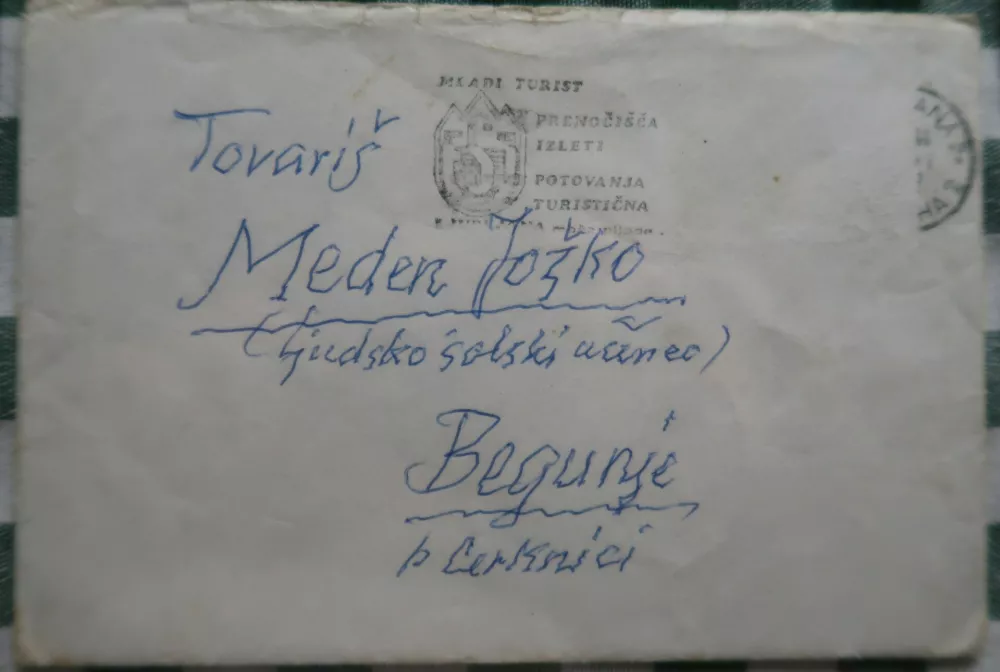 MLADI TURIST
PRENOČIŠČA
IZLETI
POTOVANJA
TURISTIČNA
Tovariš
Meden Joško
(ljudsko šolski učenec)
Begunje
p Cerknici